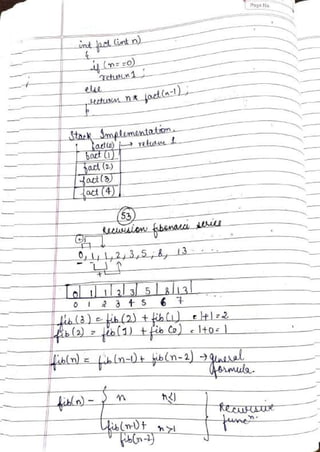 Page No.
int fact (int n)
{
if (n==0)
return 1;
else
return n* fact(n-1);
}
Stack Implementation.
fact(0) → return 1
fact (1)
fact (2)
fact (3)
fact (4)
53
Recursion fibonacci series
0, 1, 1, 2, 3, 5, 8, 13 - - - -
0 1 1 2 3 5 8 13
0 1 2 3 4 5 6 7
fib (3) = fib (2) + fib (1) = 1+1=2
fib (2) = fib (1) + fib (0) = 1+0=1
fib(n) = fib (n-1) + fib (n-2) → general formula.
fib(n) - { n n≤1
fib(n-1)+ n>1
fib(n-2)
Recursive funcn.